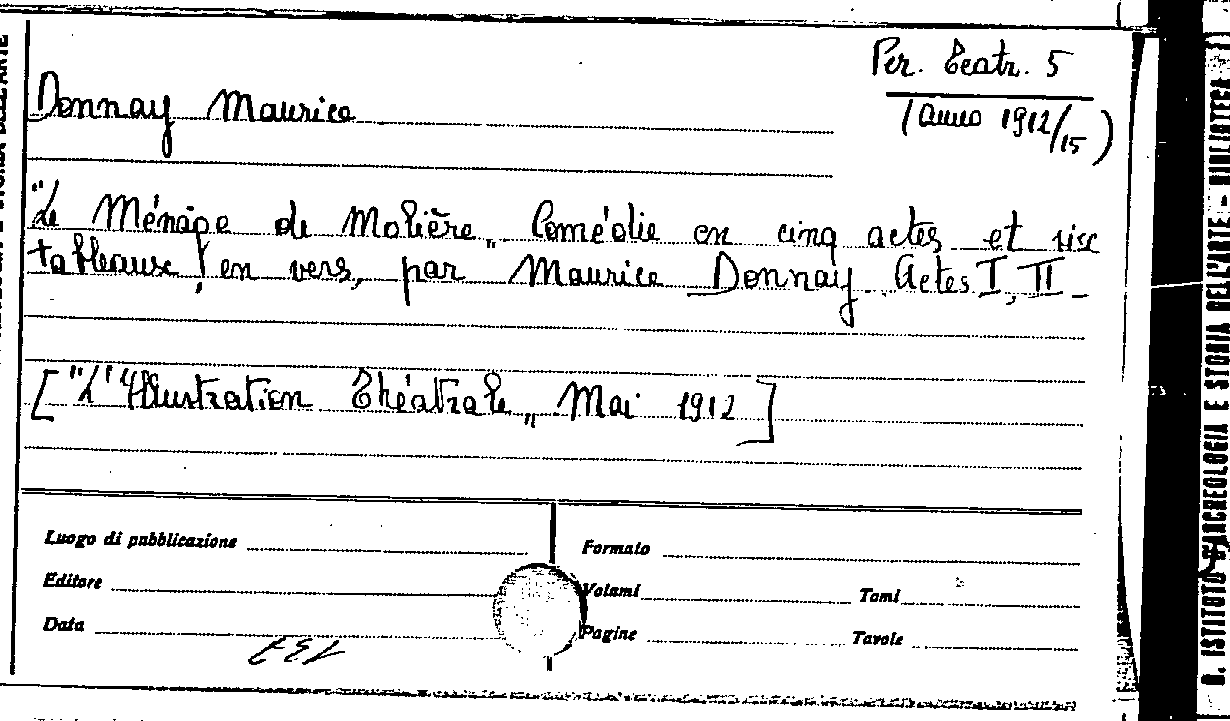 Per. Teatr. 5
(Anno 1912/15)
Donnay Maurice
"Le Ménage de Molière„ Comédie en cinq actes et six
tableaux, en vers, par Maurice Donnay. Actes I, II -
["L'Illustration Théâtrale„ Mai 1912]
Luogo di pubblicazione
Formato
Editore
Volumi
Tomi
Data
Pagine
Tavole
R. ISTITUTO D'ARCHEOLOGIA E STORIA DELL'ARTE - BIBLIOTECA